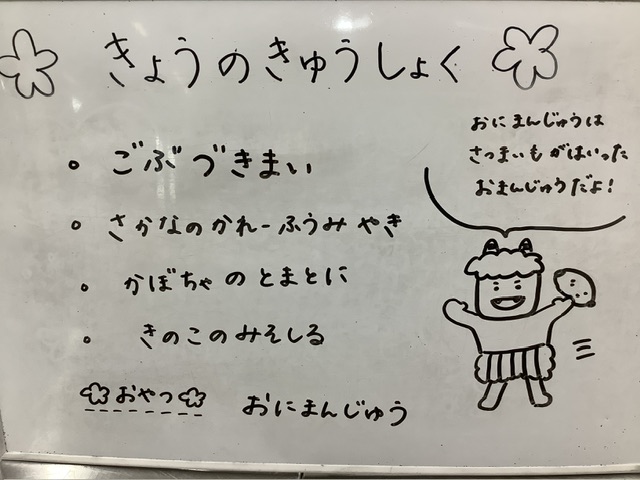 きょうのきゅうしょく
おにまんじゅうは
さつまいもがはいった
おまんじゅうだよ!
・ごぶづきまい
・さかなのかれーふうみやき
・かぼちゃのとまとに
・きのこのみそしる
おやつ おにまんじゅう